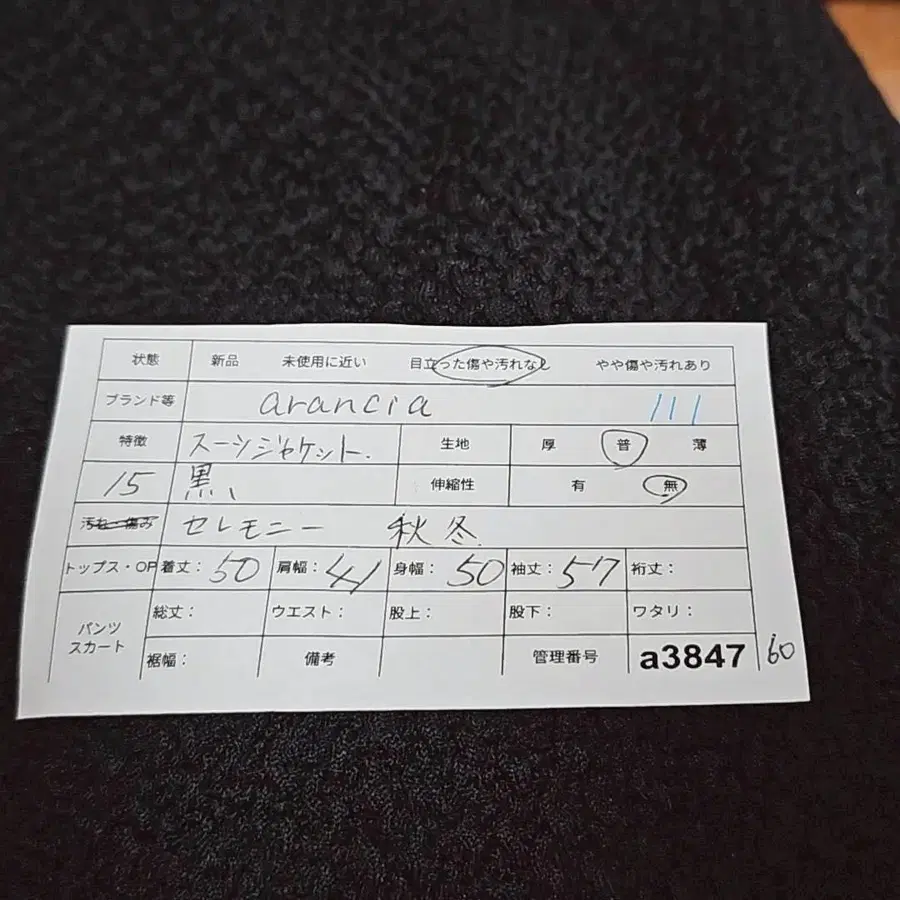 状態 新品 未使用に近い 目立った傷や汚れなし やや傷や汚れあり
ブランド等 arancia 111
特徴 スーツジャケット. 生地 厚 普 薄
15 黒、 伸縮性 有 無
汚れ・傷み セレモニー 秋冬
トップス・OP 着丈：50 肩幅：41 身幅：50 袖丈：57 裄丈：
パンツ スカート 総丈： ウエスト： 股上： 股下： ワタリ：
裾幅： 備考 管理番号 a3847 60